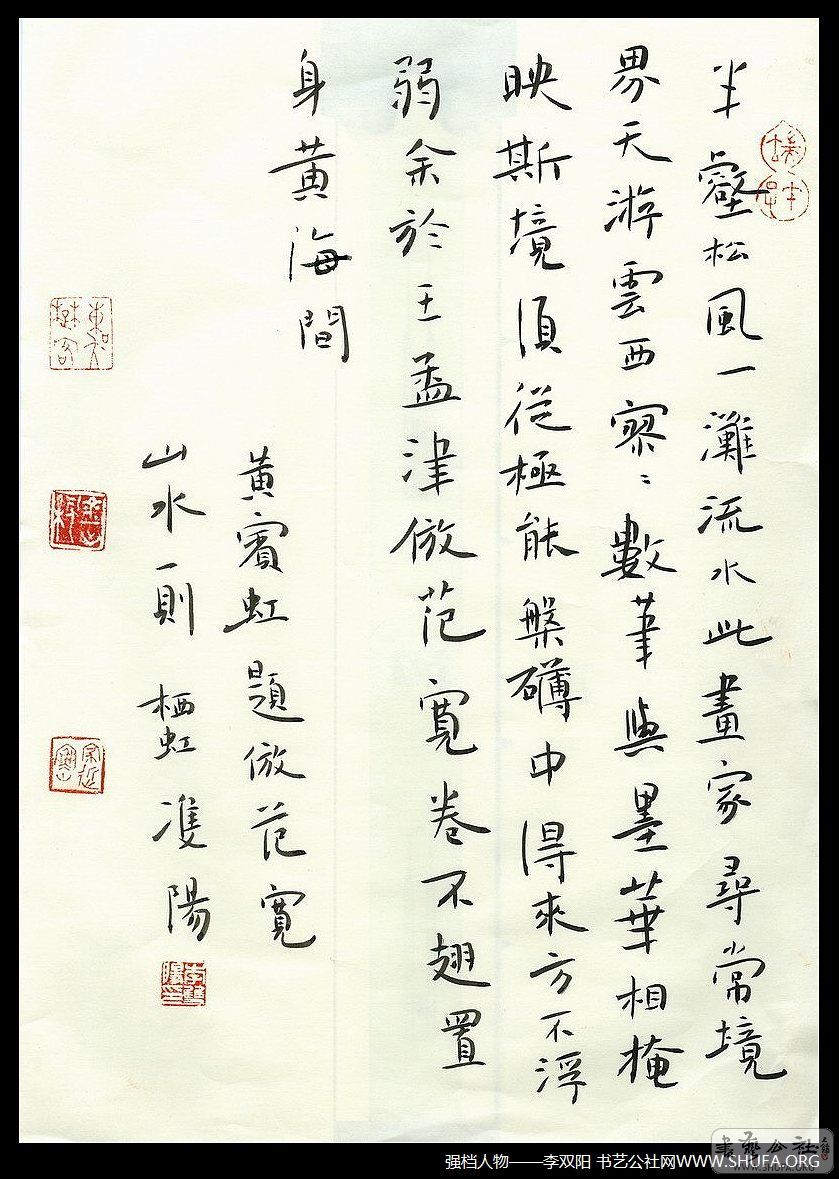 半壑松風一灘流水此畫家尋常境
界天游雲西寥〻數筆與墨華相掩
映斯境須從極能槃礴中得來方不浮
弱余於王孟津倣范寬卷不翅置
身黃海間
黃賓虹題倣范寬
山水一則 栖虹 雙陽
强档人物——李双阳 书艺公社网WWW.SHUFA.ORG
書藝公社
WWW.SHUFA.ORG